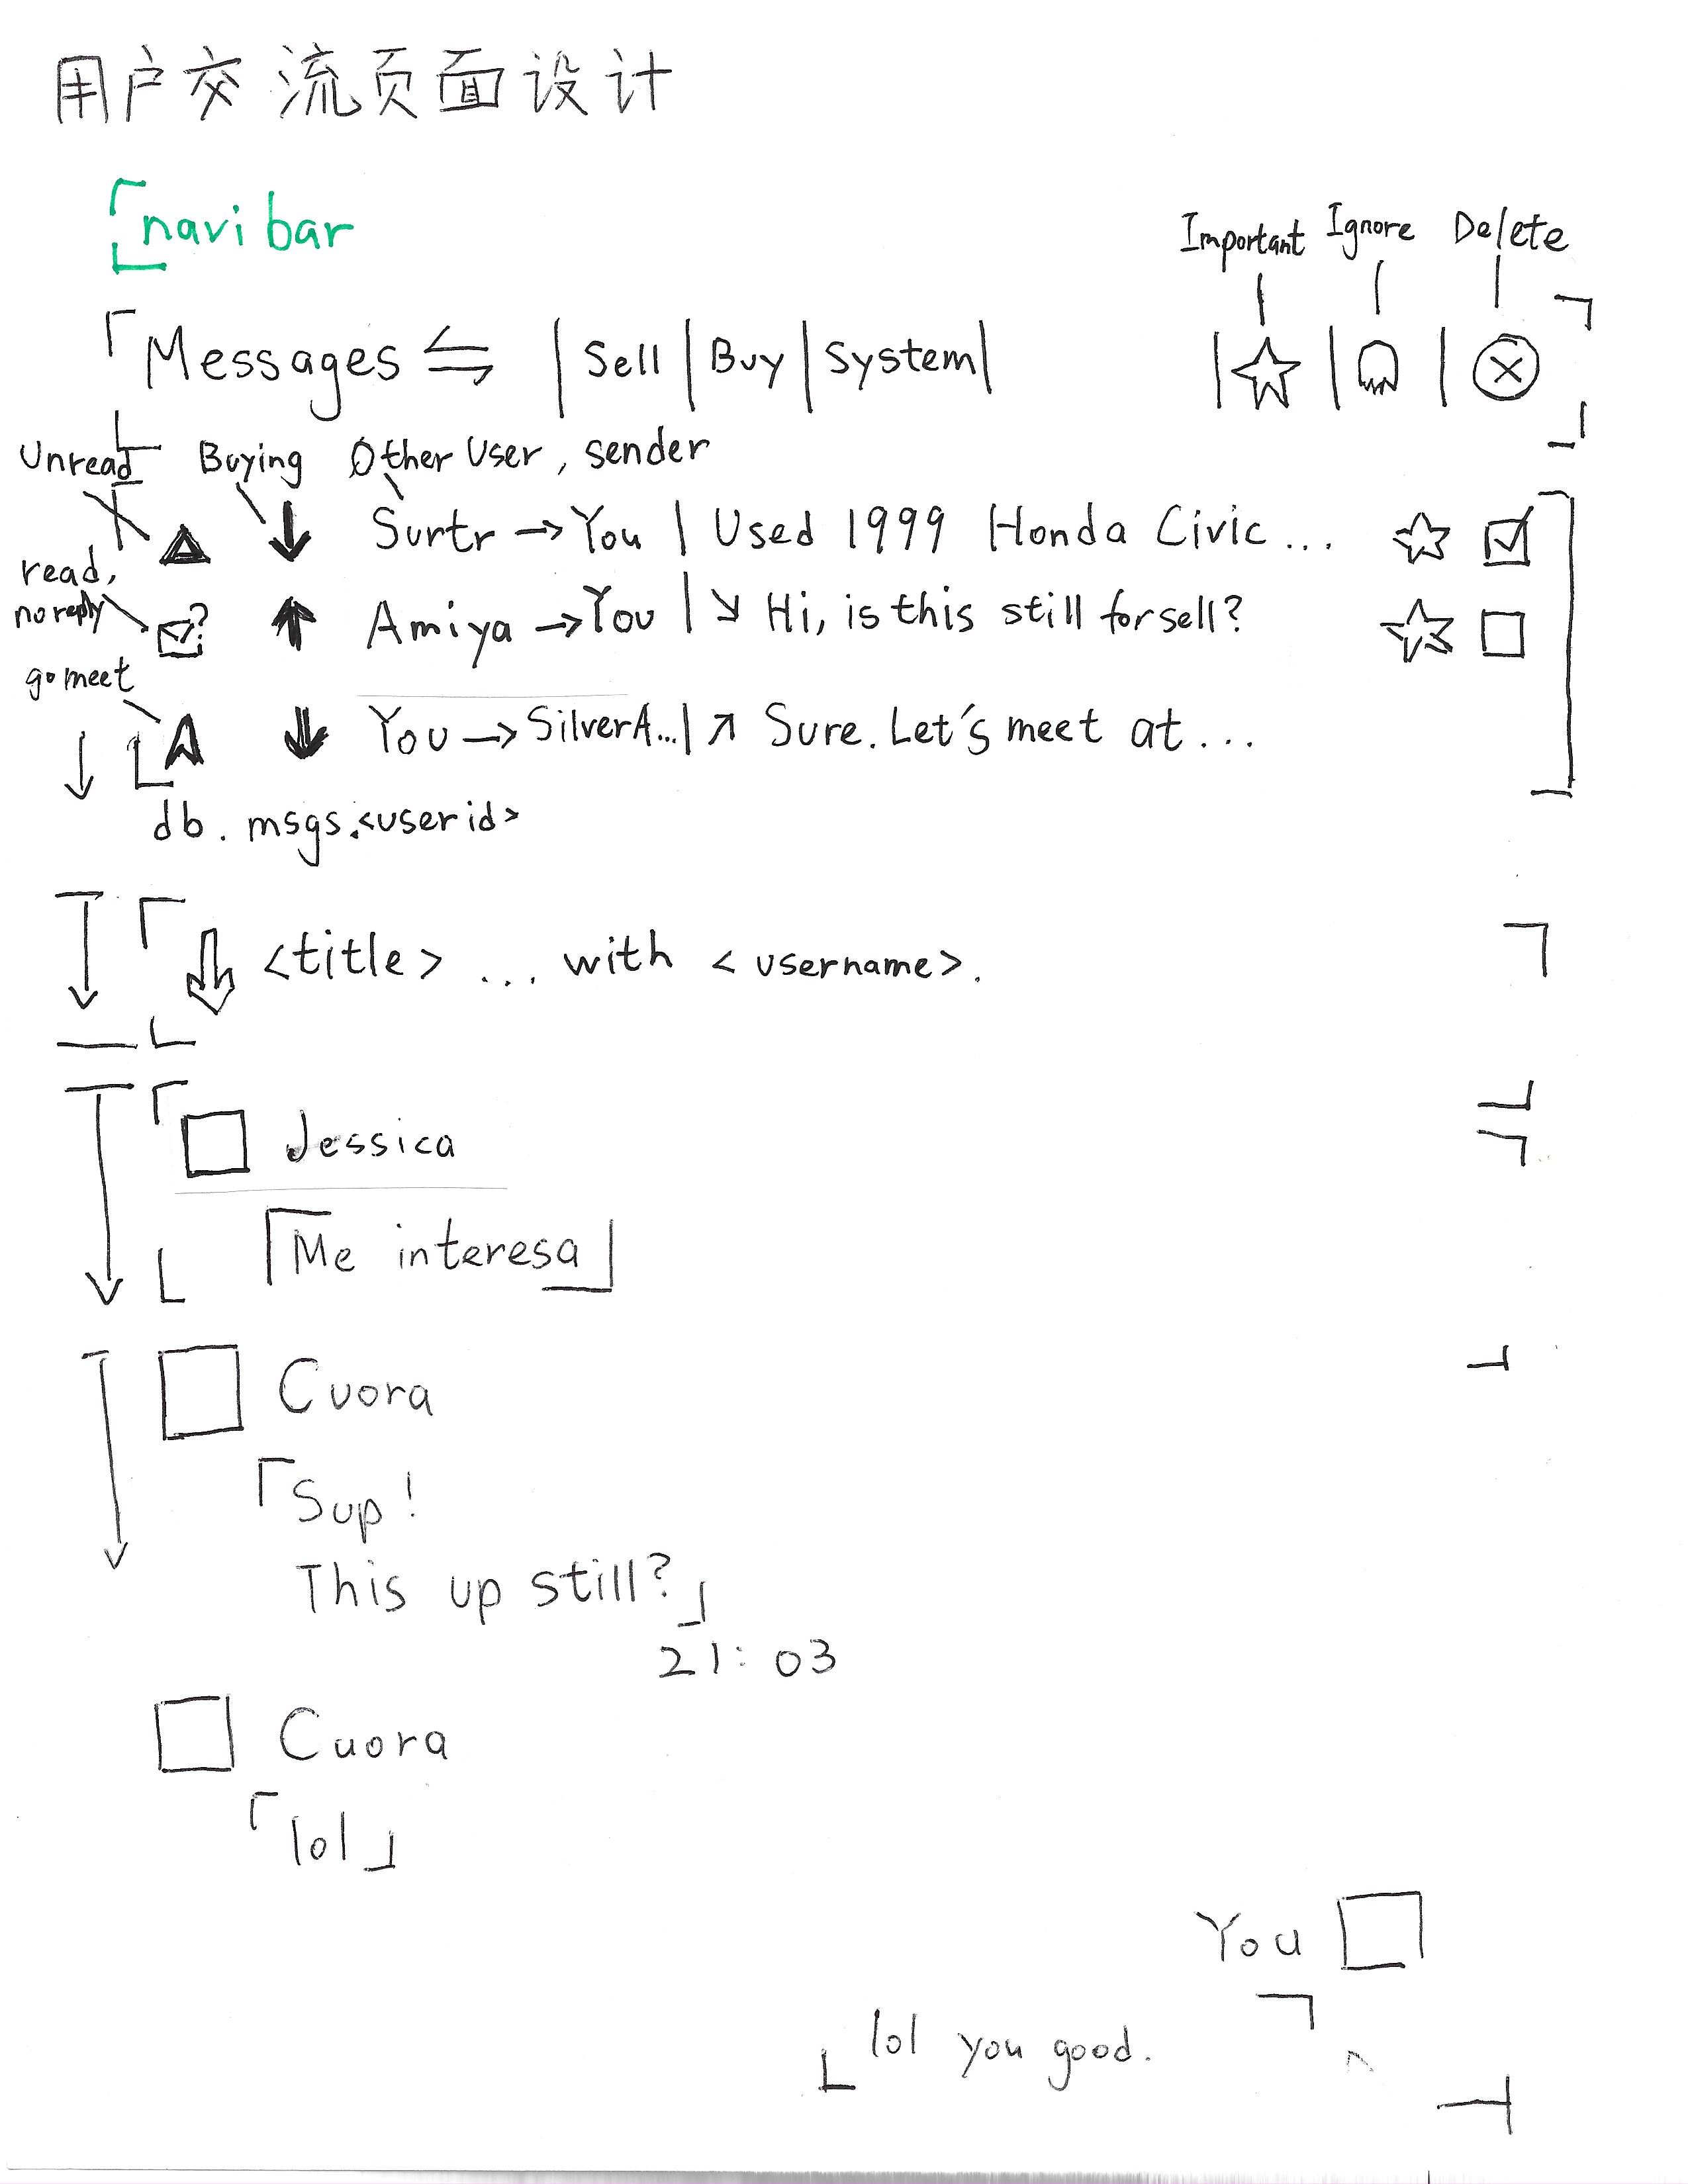 用户交流页面设计
navi bar
Important Ignore Delete
Messages ⇋ | Sell | Buy | System |
Unread Buying Other User, sender
Surtr → You | Used 1999 Honda Civic ...
read, no reply
Amiya → You | ↘ Hi, is this still for sell?
go meet
You → SilverA... | ↗ Sure. Let's meet at ...
db. msgs.<userid>
<title> ... with <username>.
Jessica
「Me interesa」
Cuora
「Sup!
This up still?」
21:03
Cuora
「lol」
You
lol you good.